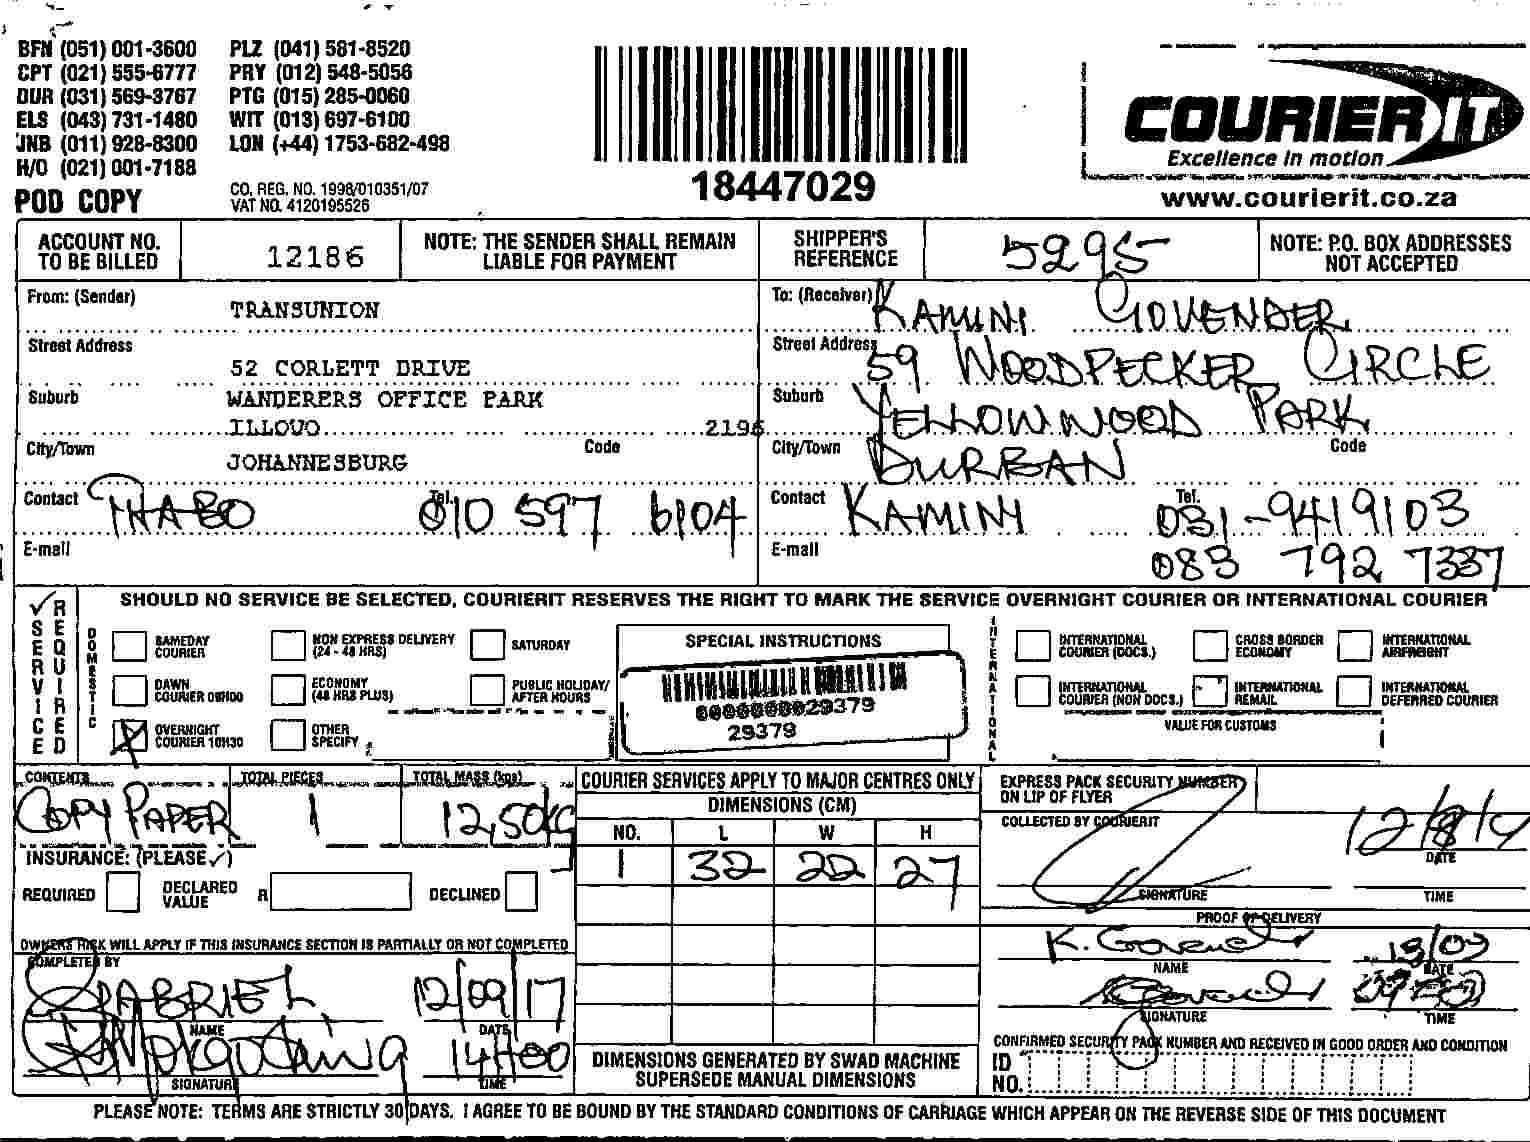 BFN (051) 001-3600 PLZ (041) 581-8520
CPT (021) 555-6777 PRY (012) 548-5056
DUR (031) 569-3767 PTG (015) 285-0060
ELS (043) 731-1480 WIT (013) 697-6100
JNB (011) 928-8300 LON (+44) 1753-682-498
H/O (021) 001-7188
POD COPY
CO. REG. NO. 1998/010351/07
VAT NO. 4120195526
18447029
COURIER IT
Excellence in motion
www.courierit.co.za
ACCOUNT NO. TO BE BILLED 12186
NOTE: THE SENDER SHALL REMAIN LIABLE FOR PAYMENT
SHIPPER'S REFERENCE 5295
NOTE: P.O. BOX ADDRESSES NOT ACCEPTED
From: (Sender) TRANSUNION
Street Address
52 CORLETT DRIVE
Suburb WANDERERS OFFICE PARK
ILLOVO 2196
City/Town Code
JOHANNESBURG
Contact THABO Tel. 010 597 6104
E-mail
To: (Receiver) KAMINI GOVENDER
Street Address 59 WOODPECKER CIRCLE
Suburb YELLOWWOOD PARK
City/Town DURBAN Code
Contact KAMINI Tel. 031-9419103
E-mail 083 792 7337
SERVICE REQUIRED
SHOULD NO SERVICE BE SELECTED, COURIERIT RESERVES THE RIGHT TO MARK THE SERVICE OVERNIGHT COURIER OR INTERNATIONAL COURIER
DOMESTIC
SAMEDAY COURIER
NON EXPRESS DELIVERY (24 - 48 HRS)
SATURDAY
DAWN COURIER 09H00
ECONOMY (48 HRS PLUS)
PUBLIC HOLIDAY/ AFTER HOURS
OVERNIGHT COURIER 10H30
OTHER SPECIFY
SPECIAL INSTRUCTIONS
0000000029379
29379
INTERNATIONAL
INTERNATIONAL COURIER (DOCS.)
CROSS BORDER ECONOMY
INTERNATIONAL AIRFREIGHT
INTERNATIONAL COURIER (NON DOCS.)
INTERNATIONAL REMAIL
INTERNATIONAL DEFERRED COURIER
VALUE FOR CUSTOMS
CONTENTS COPY PAPER
TOTAL PIECES 1
TOTAL MASS (kgs) 12,50kg
INSURANCE: (PLEASE ✓)
REQUIRED DECLARED VALUE R DECLINED
OWNERS RISK WILL APPLY IF THIS INSURANCE SECTION IS PARTIALLY OR NOT COMPLETED
COMPLETED BY
GABRIEL 12/09/17
NAME DATE
14H00
SIGNATURE TIME
COURIER SERVICES APPLY TO MAJOR CENTRES ONLY
DIMENSIONS (CM)
NO. L W H
1 32 22 27
DIMENSIONS GENERATED BY SWAD MACHINE
SUPERSEDE MANUAL DIMENSIONS
EXPRESS PACK SECURITY NUMBER
ON LIP OF FLYER
COLLECTED BY COURIERIT
DATE
SIGNATURE TIME
PROOF OF DELIVERY
K. Govender 13/09
NAME DATE
SIGNATURE TIME
CONFIRMED SECURITY PACK NUMBER AND RECEIVED IN GOOD ORDER AND CONDITION
ID NO.
PLEASE NOTE: TERMS ARE STRICTLY 30 DAYS. I AGREE TO BE BOUND BY THE STANDARD CONDITIONS OF CARRIAGE WHICH APPEAR ON THE REVERSE SIDE OF THIS DOCUMENT